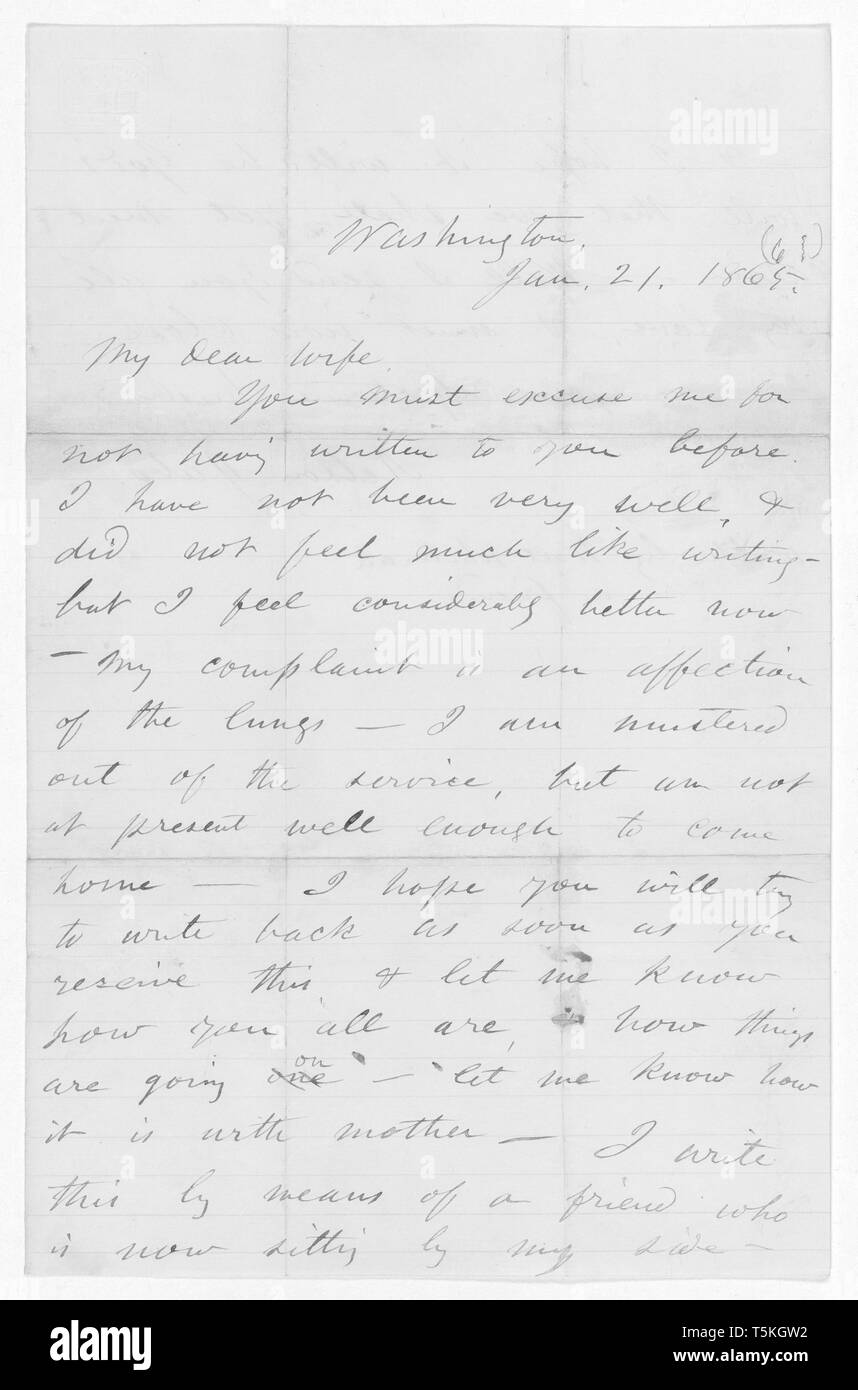 Washington.
(6 )
Jan. 21. 1865.
My dear wife.
You must excuse me for
not having written to you before.
I have not been very well, &
did not feel much like writing -
but I feel considerably better now
- My complaint is an affection
of the lungs — I am mustered
out of the service, but am not
at present well enough to come
home — I hope you will try
to write back as soon as you
receive this & let me know
how you all are, how things
are going one on — let me know how
it is with mother — I write
this by means of a friend who
is now sitting by my side —
alamy
a
alamy stock photo
Image ID: T5KGW2
www.alamy.com